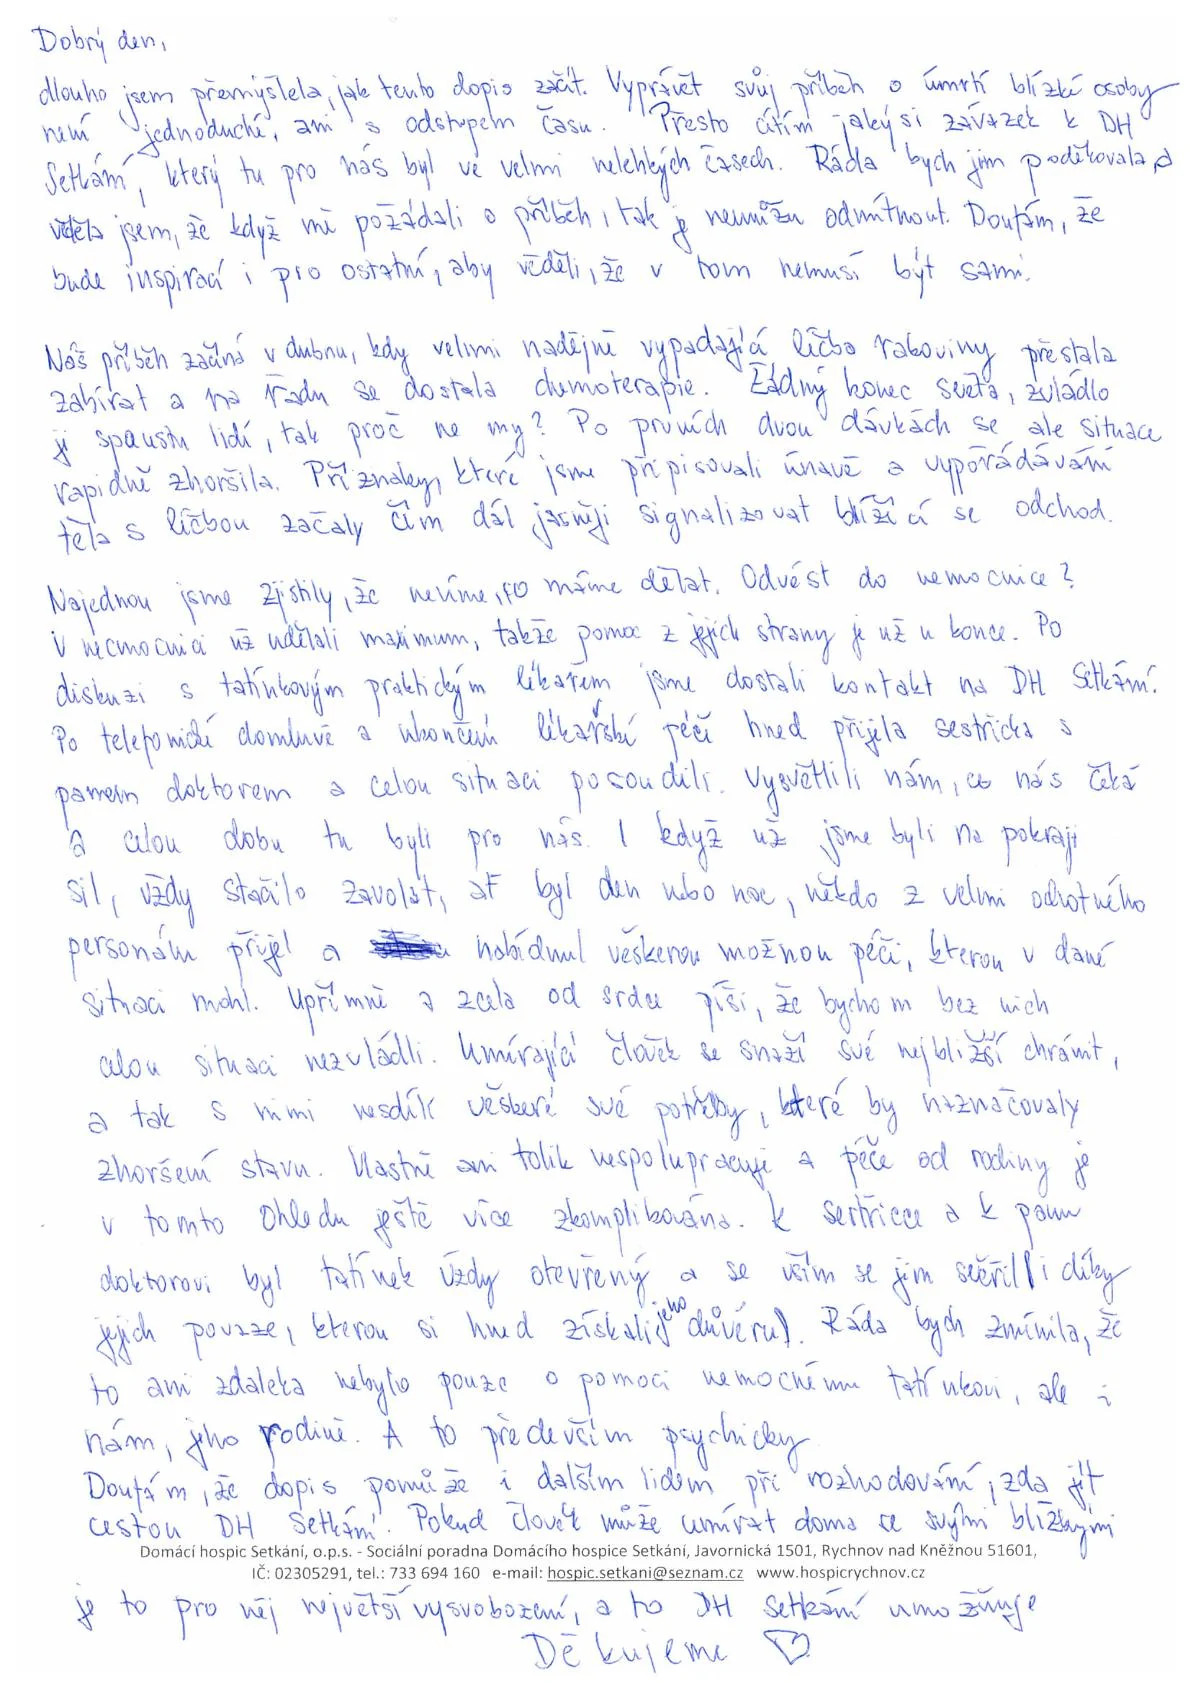 Dobrý den,
dlouho jsem přemýšlela, jak tento dopis začít. Vyprávět svůj příběh o úmrtí blízké osoby
není jednoduché, ani s odstupem času. Přesto cítím jakýsi závazek k DH
Setkání, který tu pro nás byl ve velmi nelehkých časech. Ráda bych jim poděkovala a
věděla jsem, že když mě požádali o příběh, tak je nemůžu odmítnout. Doufám, že
bude inspirací i pro ostatní, aby věděli, že v tom nemusí být sami.
Náš příběh začíná v dubnu, kdy velmi nadějně vypadající léčba rakoviny přestala
zabírat a na řadu se dostala chemoterapie. Žádný konec světa, zvládlo
ji spoustu lidí, tak proč ne my? Po prvních dvou dávkách se ale situace
rapidně zhoršila. Příznaky, které jsme připisovali únavě a vypořádávání
těla s léčbou začaly čím dál jasněji signalizovat blížící se odchod.
Najednou jsme zjistily, že nevíme, co máme dělat. Odvést do nemocnice?
V nemocnici už udělali maximum, takže pomoc z jejich strany je už u konce. Po
diskuzi s tatínkovým praktickým lékařem jsme dostali kontakt na DH Setkání.
Po telefonické domluvě a ukončení lékařské péče hned přijela sestřička s
panem doktorem a celou situaci posoudili. Vysvětlili nám, co nás čeká
a celou dobu tu byli pro nás. I když už jsme byli na pokraji
sil, vždy stačilo zavolat, ať byl den nebo noc, někdo z velmi ochotného
personálu přijel a nabídnul veškerou možnou péči, kterou v dané
situaci mohl. Upřímně a zcela od srdce píši, že bychom bez nich
celou situaci nezvládli. Umírající člověk se snaží své nejbližší chránit,
a tak s nimi nesdílí veškeré své potřeby, které by naznačovaly
zhoršení stavu. Vlastně ani tolik nespolupracuje a péče od rodiny je
v tomto ohledu ještě více zkomplikována. K sestřičce a k panu
doktorovi byl tatínek vždy otevřený a se vším se jim svěřil (i díky
jejich povaze, kterou si hned získali jeho důvěru). Ráda bych zmínila, že
to ani zdaleka nebylo pouze o pomoci nemocnému tatínkovi, ale i
nám, jeho rodině. A to především psychicky
Doufám, že dopis pomůže i dalším lidem při rozhodování, zda jít
cestou DH Setkání. Pokud člověk může umírat doma se svými blízkými
Domácí hospic Setkání, o.p.s. - Sociální poradna Domácího hospice Setkání, Javornická 1501, Rychnov nad Kněžnou 51601,
IČ: 02305291, tel.: 733 694 160 e-mail: hospic.setkani@seznam.cz www.hospicrychnov.cz
je to pro něj největší vysvobození, a to DH Setkání umožňuje
Děkujeme ♡